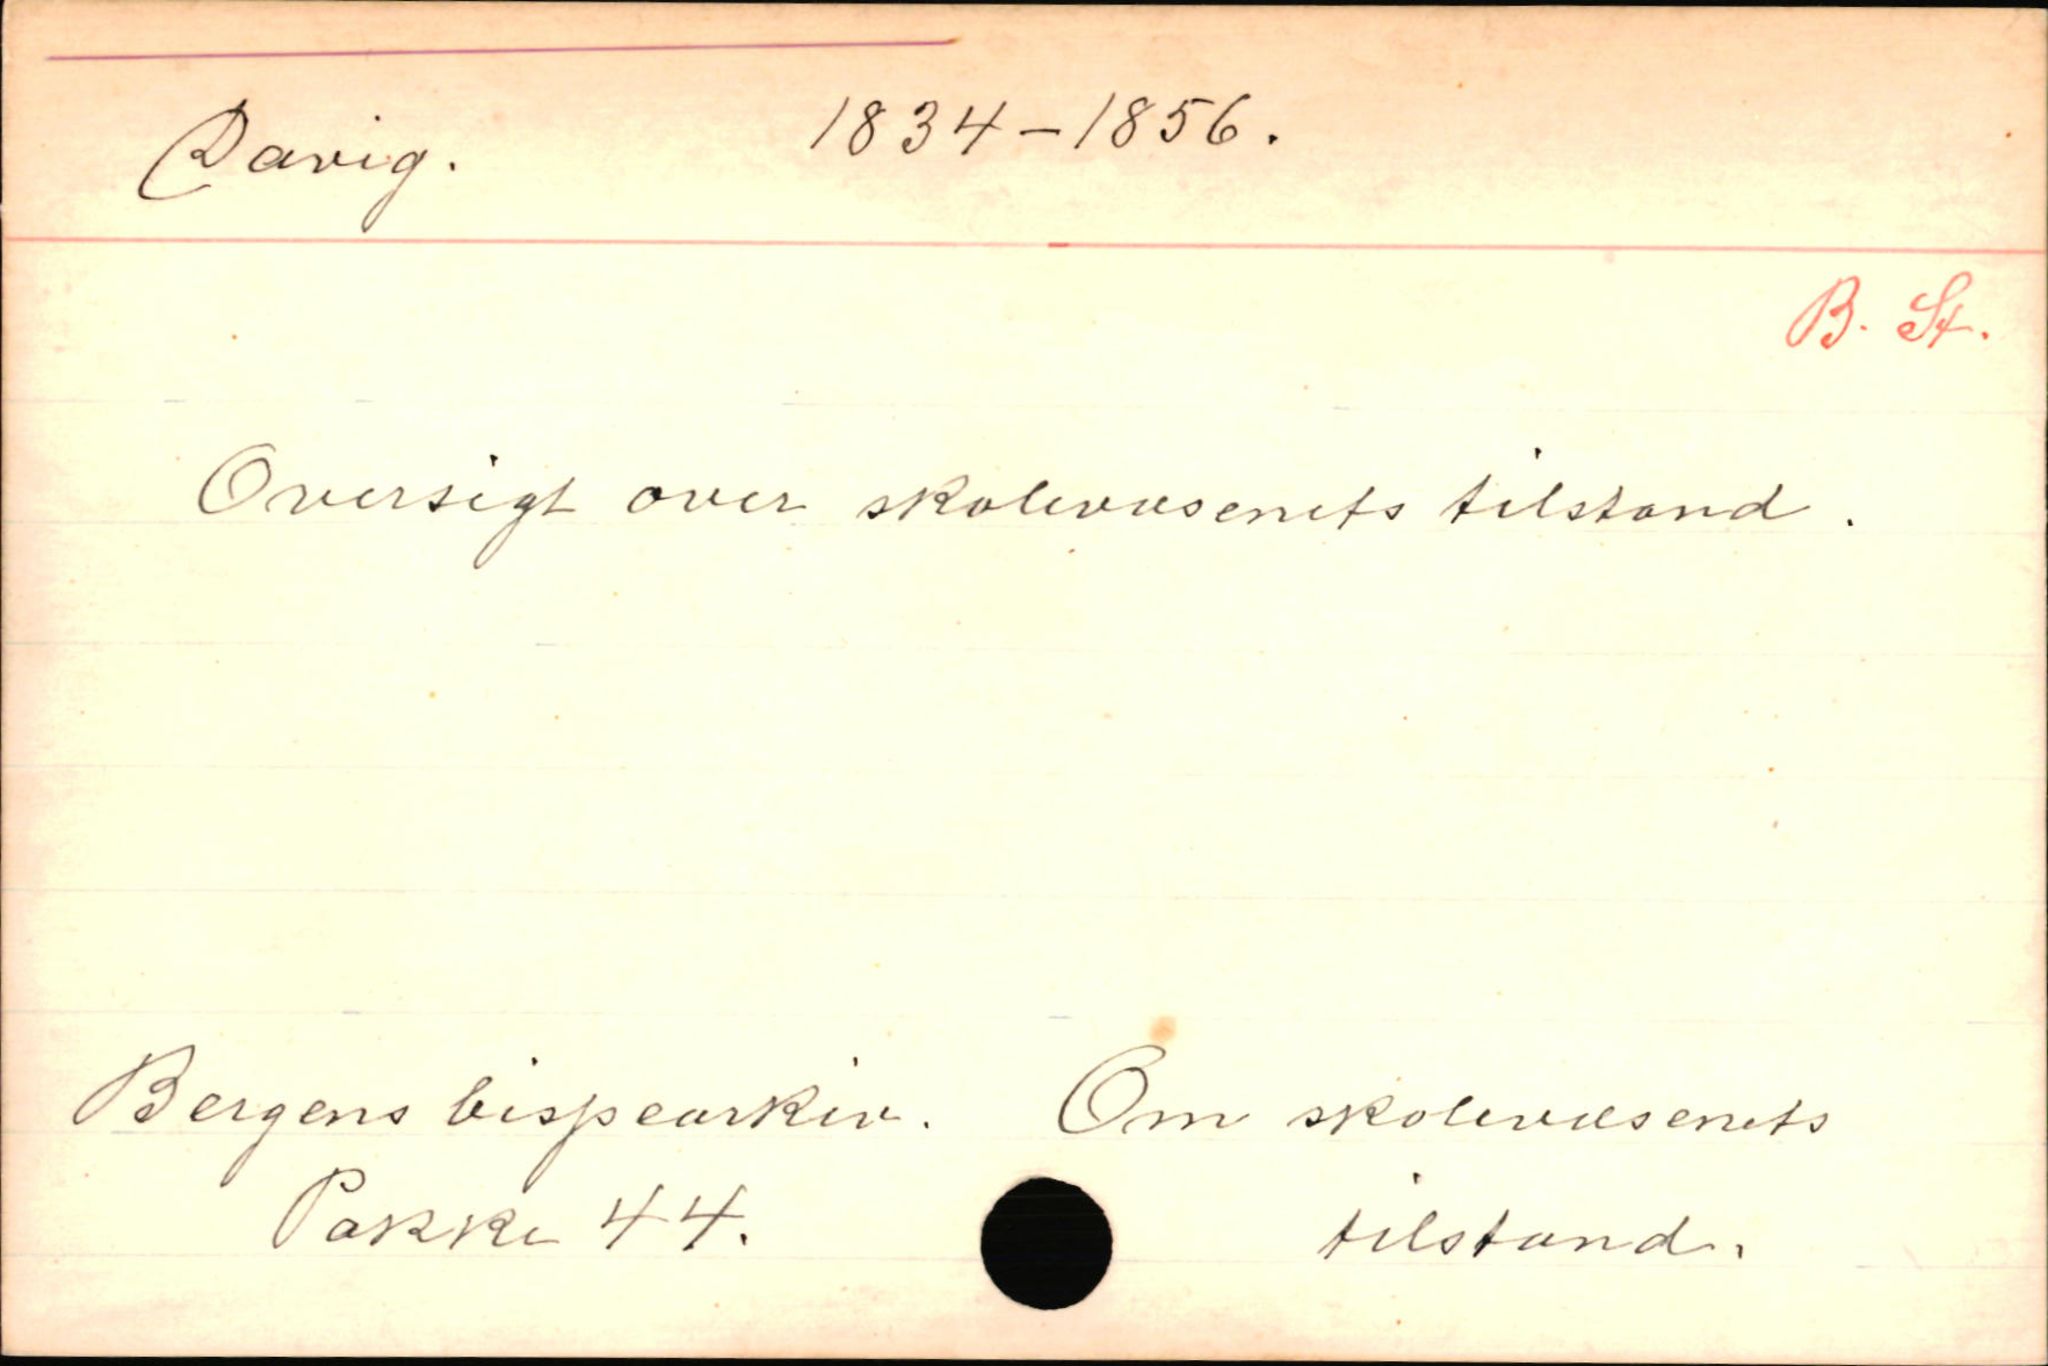 Davig. 1834-1856.
B. St.
Oversigt over skolevæsenets tilstand.
Bergens bispearkiv. Om skolevæsenets
Pakke 44. tilstand.